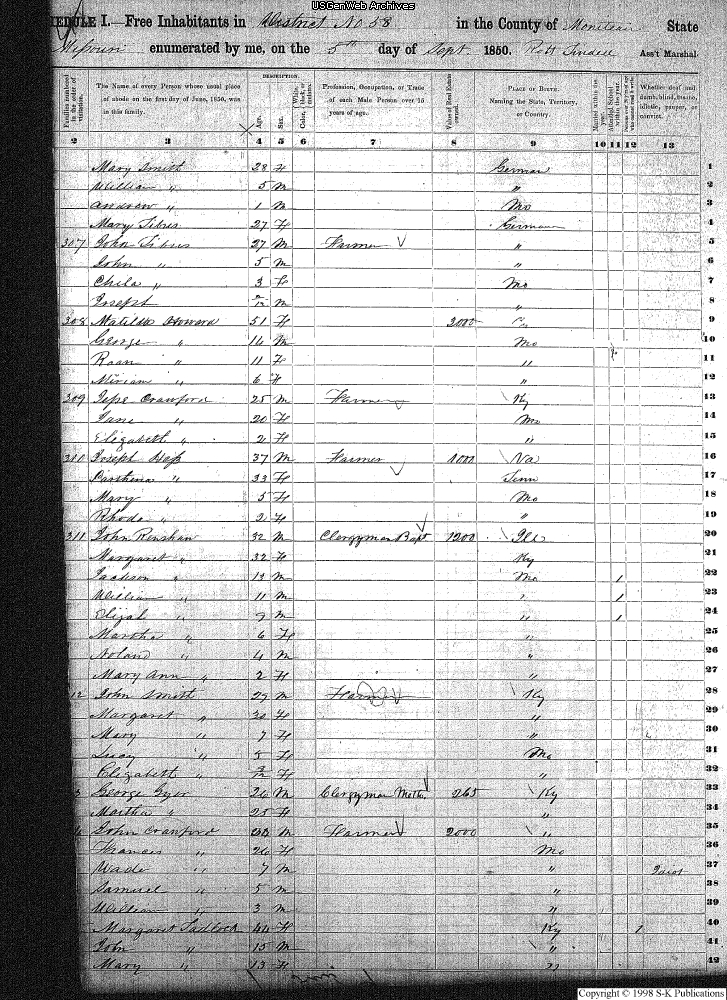 USGenWeb Archives
EDULE I.—Free Inhabitants in District No 58 in the County of Moniteau State
Missouri enumerated by me, on the 5th day of Sept 1850. Ass't Marshal
DESCRIPTION.
Families numbered in the order of visitation.
The Name of every Person whose usual place of abode on the first day of June, 1850, was in this family.
Age.
Sex.
Color, { White, black, or mulatto.
Profession, Occupation, or Trade of each Male Person over 15 years of age.
Value of Real Estate owned.
PLACE OF BIRTH. Naming the State, Territory, or Country.
Married within the year.
Attended School within the year.
Whether deaf and dumb, blind, insane, idiotic, pauper, or convict.
2 3 4 5 6 7 8 9 10 11 12 13
Mary Smith 28 F German 1
William " 5 M " 2
Andrew " 1 M Mo 3
Mary 27 F German 4
307 John 27 M Farmer " 5
John " 5 M " 6
3 F Mo 7
Joseph M " 8
308 Matilda Howard 51 F 2000 9
George " 14 M Mo 10
" 11 F " 11
Miriam " 6 F " 12
309 Crawford 25 M Farmer Ky 13
Jane " 20 F Mo 14
Elizabeth " 2 F " 15
310 Joseph Hess 37 M Farmer 1000 Va 16
" 33 F Tenn 17
Mary " 5 F Mo 18
Rhoda " 2 F " 19
311 John Renshaw 32 M Clergyman Bapt 1200 20
Margaret " 32 F Ky 21
Jackson " 13 M Mo 1 22
William " 11 M " 1 23
Elijah " 9 M " 1 24
Martha " 6 F " 25
Noland " 4 M " 26
Mary Ann " 2 F " 27
12 John Smith 29 M Farmer Ky 28
Margaret " 30 F " 29
Mary " 7 F " 30
Lucy " 5 F Mo 31
Elizabeth " F " 32
3 George 26 M Clergyman Meth. 265 Ky 33
Martha " 25 F " 34
John Crawford M Farmer 2000 " 35
Frances " 26 F Mo 36
Wade " 7 M " Idiot 37
Samuel " 5 M " 38
William " 3 M " 39
Margaret Tadlock 44 F Ky 1 40
John " 15 M " 41
Mary " 13 F " 42
Copyright © 1998 S-K Publications